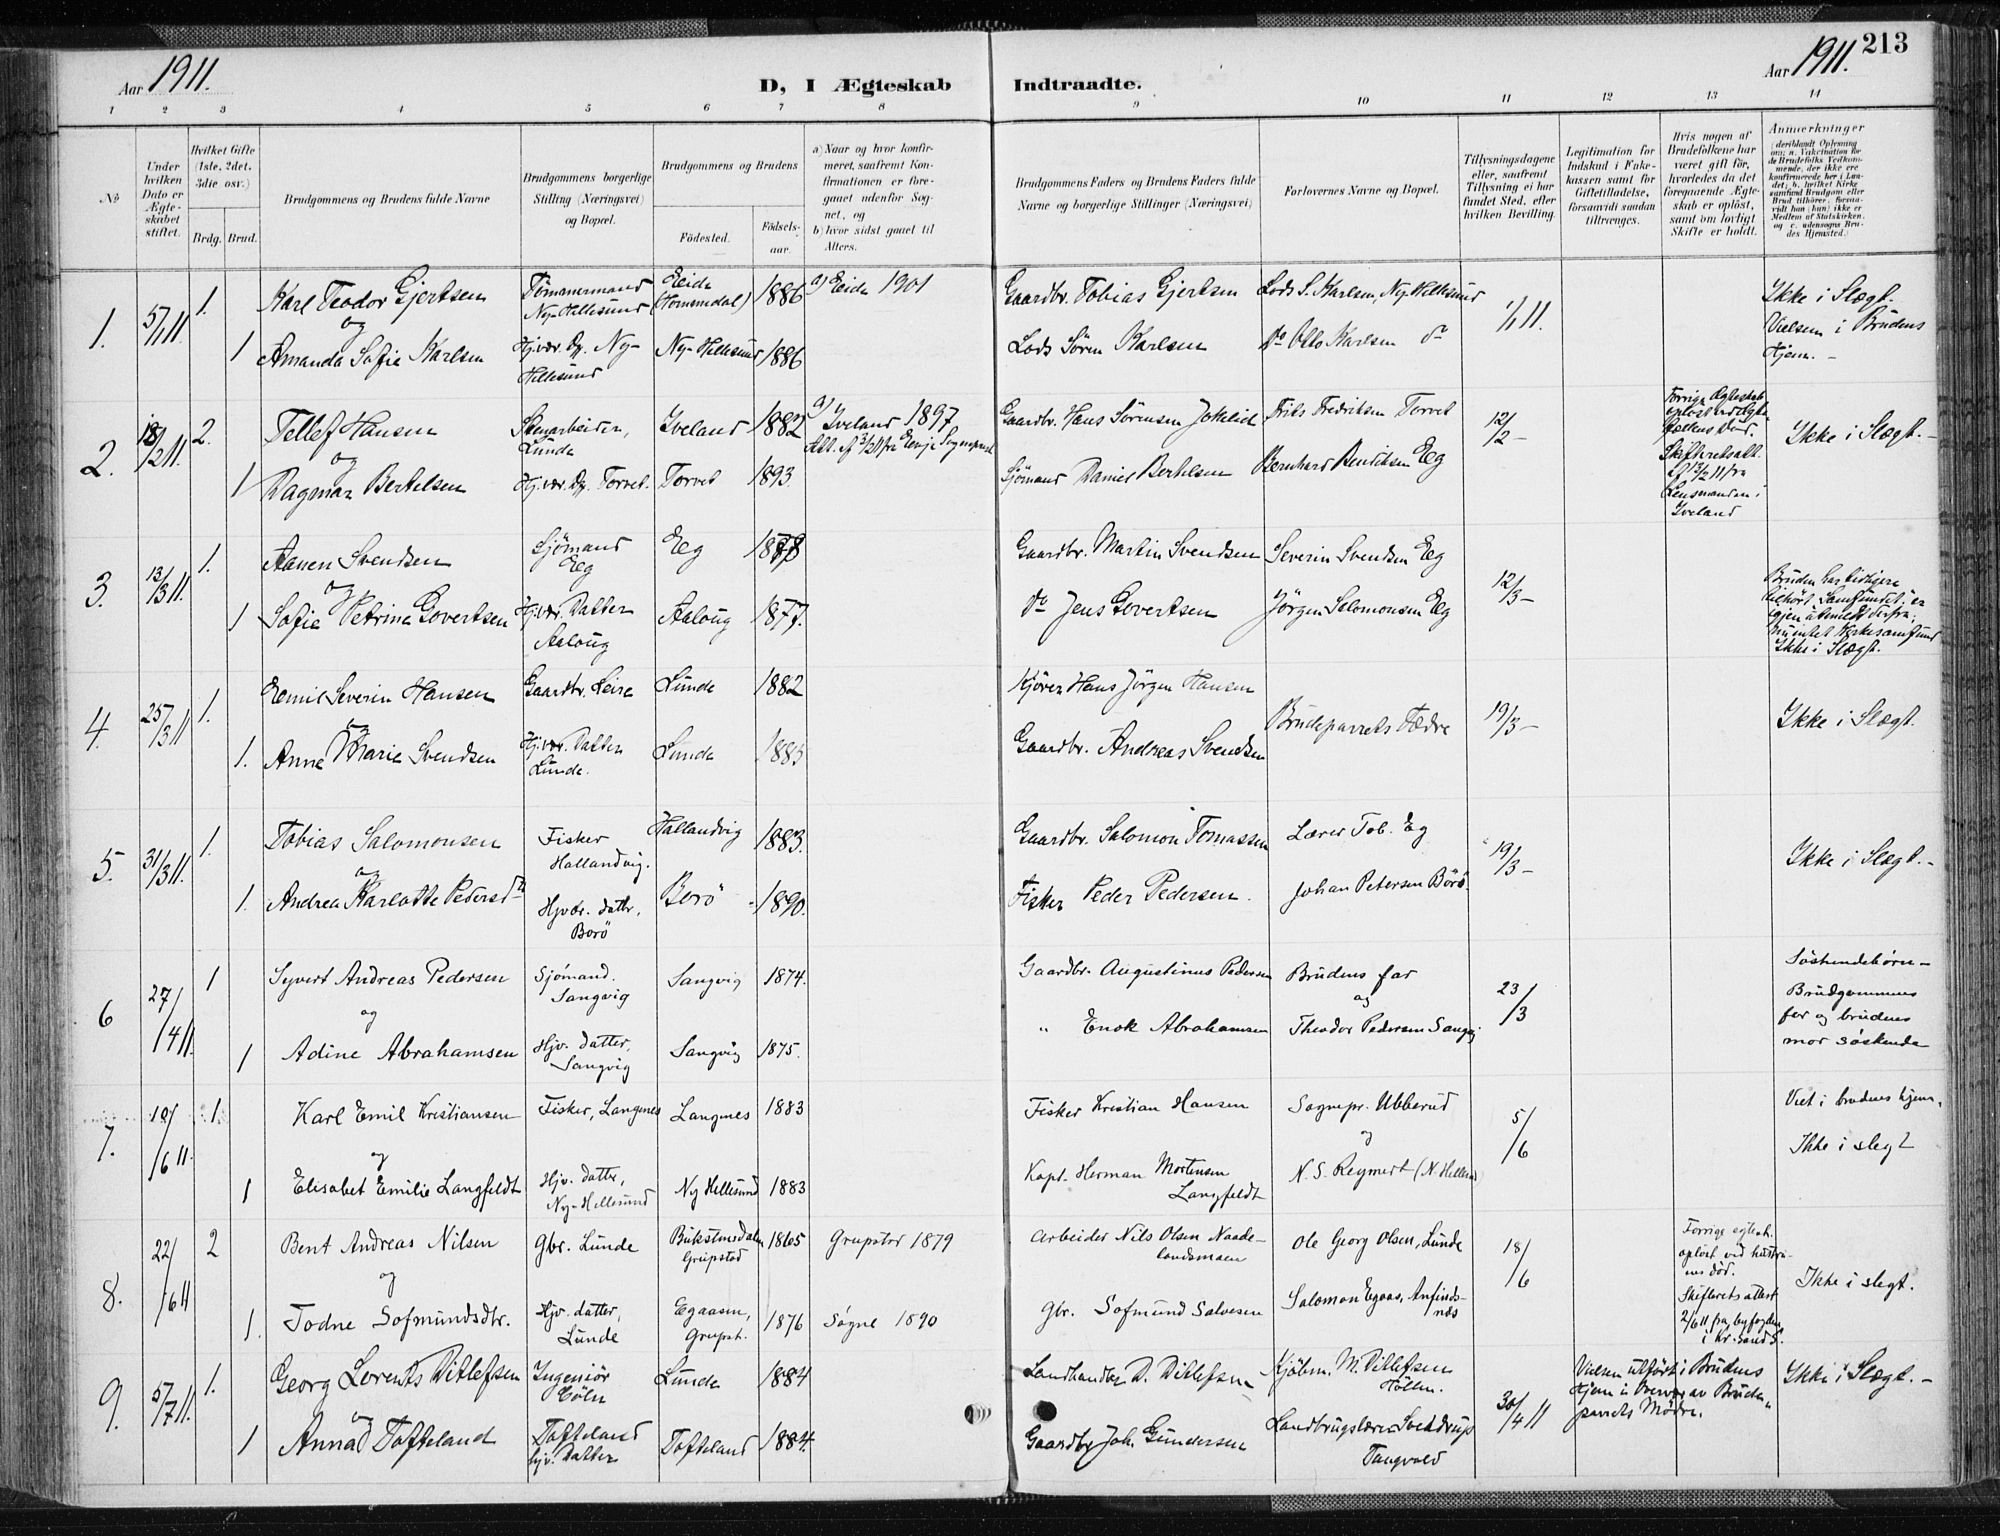 Aar 1911.
D, I Ægteskab Indtraadte.
Aar 1911. 213
1 2 3 4 5 6 7 8 9 10 11 12 13 14
No
Under hvilken Dato er Ægteskabet stiftet.
Hvilket Gifte (1ste, 2det, 3die osv.)
Brdg. Brud.
Brudgommens og Brudens fulde Navne
Brudgommens borgerlige Stilling (Næringsvei) og Bopæl.
Brudgommens og Brudens
Födested. Födselsaar.
a) Naar og hvor konfirmeret, saafremt Konfirmationen er foregaaet udenfor Sognet, og
b) hvor sidst gaaet til Alters.
Brudgommens Faders og Brudens Faders fulde Navne og borgerlige Stillinger (Næringsvei)
Forlovernes Navne og Bopæl.
Tillysningsdagene eller, saafremt Tillysning ei har fundet Sted, efter hvilken Bevilling.
Legitimation for Indskud i Enkekassen samt for Giftetilladelse, forsaavidt saadan tiltrænges.
Hvis nogen af Brudefolkene har været gift før, hvorledes da det foregaaende Ægteskab er oplöst, samt om lovligt Skifte er holdt.
Anmærkninger
(deriblandt Oplysning om: a. Vakcination for de Brudefolks Vedkommende, der ikke ere konfirmerede her i Landet; b. hvilket Kirkesamfund Brudgom eller Brud tilhörer, forsaavidt han (hun) ikke er Medlem af Statskirken, og c. udensogns Brudes Hjemsted.)
1. 5/1 11. 1. Karl Teodor Gjertsen Tömmermand Ny-Hellesund Eide (Homemdal) 1886 a) Eide 1901 Gaardbr. Tobias Gjertsen Lods S. Karlsen, Ny-Hellesund 1/1 11. Ikke i Slægt. Vielsen i Brudens Hjem. -
og
1 Amanda Sofie Karlsen Hj.vær. D. Ny-Hellesund Ny-Hellesund 1886 Lods Sören Karlsen Do Otto Karlsen do
2. 18/2 11. 2. Tellef Hansen Stenarbeider, Lunde Iveland 1882 a) Iveland 1897 Att. af 3/2 11 fra Evje Sogneprest Gaardbr. Hans Sørensen Jokelid Frits Fredriksen Torvet 12/2 - Forrige Ægteskab oplöst ved Ægtefællens Död. Skifteretsatt. af 13/2 11 fra Lensmanden i Iveland Ikke i Slægt. -
og
1 Dagmar Bertelsen Hj.vær. D. Torvet. Torvet 1893. Sjömand Daniel Bertelsen Bernhard Bendiksen Eg
3. 13/3 11. 1. Aanen Svendsen Sjömand Eg Eg 1878 Gaardbr. Martin Svendsen Severin Svendsen Eg 12/3 - Bruden har tidligere tilhört Samfundet, er igjen utmeldt derfra; nu intet Kirkesamfund Ikke i Slægt.
og
1 Sofie Petrine Govertsen Hj.vær. Datter Aaloug Aaloug 1877. Do Jens Govertsen Jörgen Salomonsen Eg
4. 25/3 11 1. Emil Severin Hansen Gaardbr. Leire Lunde 1882 Kjörer Hans Jörgen Hansen Brudeparrets Fædre 19/3 - Ikke i Slægt.
og
1. Anne Marie Svendsen Hj.vær. Datter Lunde. Lunde 1885 Gaardbr. Andreas Svendsen
5. 31/3 11. 1. Tobias Salomonsen Fisker Hallandvig. Hallandvig 1883. Gaardbr. Salomon Tomassen Lærer Tob. Eg 19/3 - Ikke i Slægt. -
og
1. Andrea Karlotte Pedersdtr Hjvær. dattr, Borö Borö 1890. Fisker Peder Pedersen. Johan Petersen Börö.
6 27/4 11. 1 Syvert Andreas Pedersen Sjömand. Sangvig Sangvig 1874. Gaardbr. Augustinus Pedersen Brudens far 23/3 Søskendebørn - Brudgommens far og brudens mor søskende
og og
1 Adine Abrahamsen Hjv. datter, Sangvig Sangvig 1875. " Enok Abrahamsen Theodor Pedersen Sangvig
7. 10/6 11. 1 Karl Emil Kristiansen Fisker, Langenes Langenes 1883 Fisker Kristian Hansen Sognepr. Ubberud 5/6 Viet i brudens hjem. Ikke i slegt
og og
1 Elisabet Emilie Langfeldt Hjv. datter, Ny-Hellesund Ny Hellesund 1883 Kapt. Herman Mortensen Langfeldt N. S. Reymert (N. Hellesd
8. 22/6 11 2 Bent Andreas Nilsen Gbr. Lunde Bukstensdalen Grupstad 1865 Grupstad 1879 Arbeider Nils Olsen Naadelandsmoen Ole Georg Olsen, Lunde 18/6 Forrige egtesk. oplöst ved hustruens död. Skifterets attest 2/6 11 fra byfogden i Kr.sand S. Ikke i slegt.
og
1. Todne Sofmundsdtr. Hjv. datter, Lunde Egaasen, Grupst. 1876 Søgne 1890 Gbr. Sofmund Salvesen Salomon Egaas, Anfindsnæs
9. 5/7 11. 1. Georg Lorents Ditlefsen Ingeniör Cöln Lunde 1884 Landhandler D. Ditlefsen Kjöbm. M. Ditlefsen Höllen. 30/4 11 Vielsen utfört i Brudens Hjem i Overvær av Brudeparrets Mödre. Ikke i Slægt. -
og
1 Anna Tofteland Tofteland hjv. Datter Tofteland 1884. Gaardbr Joh. Gundersen Landbrugslærer Sverdrup Tangvald